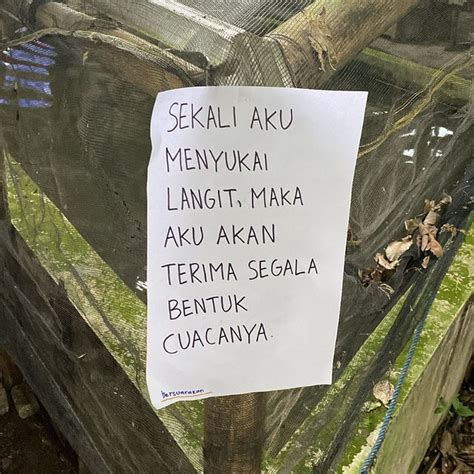 SEKALI AKU
MENYUKAI
LANGIT, MAKA
AKU AKAN
TERIMA SEGALA
BENTUK
CUACANYA.
bersuarakan